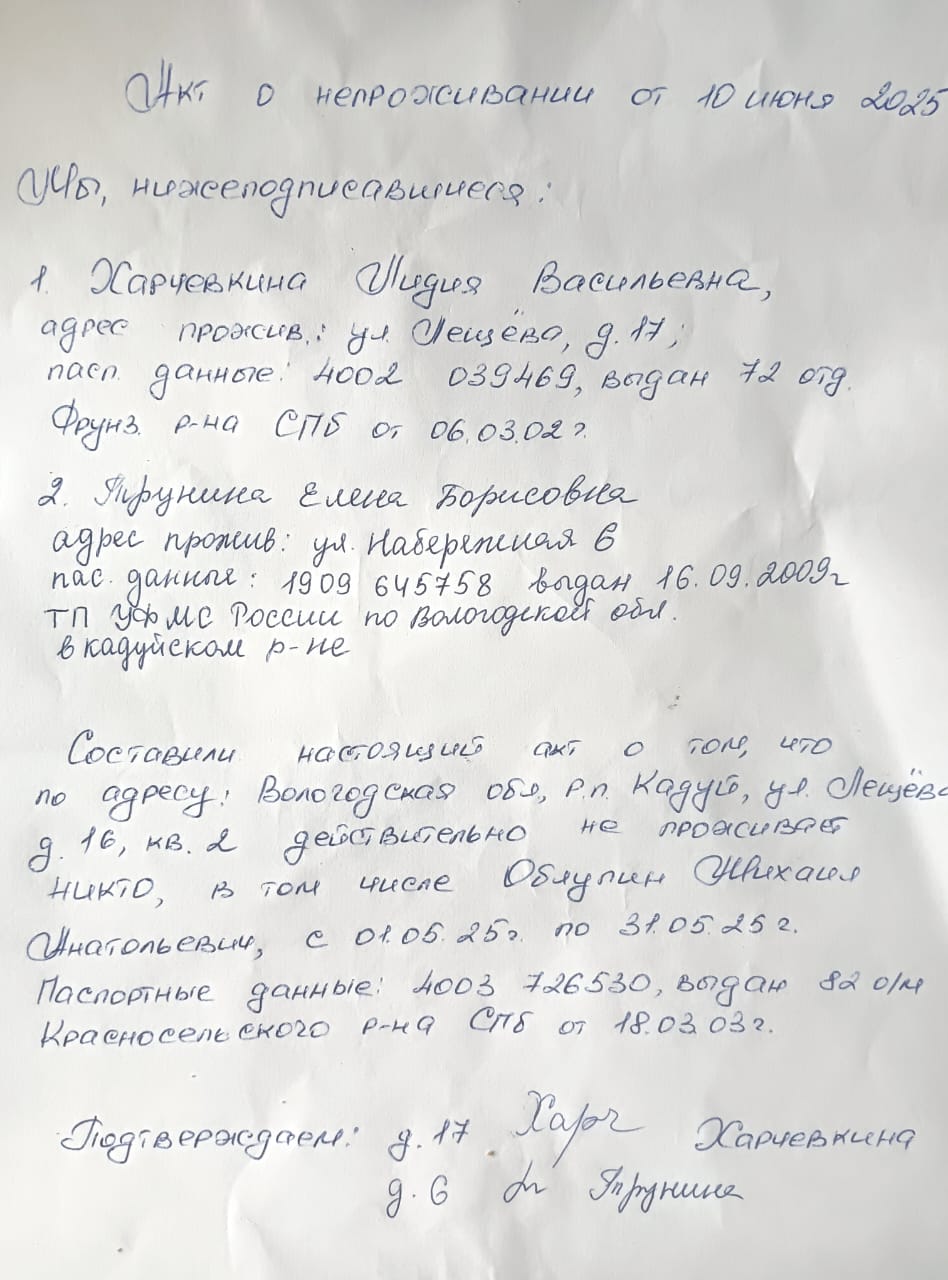 Акт о непроживании от 10 июня 2025
Мы, нижеподписавшиеся:
1. Харчевкина Лидия Васильевна,
адрес прожив.: ул. Лещёва, д. 17;
пасп. данные: 4002 039469, выдан 72 отд.
Фрунз. р-на СПб от 06.03.02 г.
2. Трунина Елена Борисовна
адрес прожив: ул. Набережная 6
пас. данные: 1909 645758 выдан 16.09.2009г
ТП УФМС России по Вологодской обл.
в кадуйском р-не
Составили настоящий акт о том, что
по адресу: Вологодская обл, р.п. Кадуй, ул. Лещёва
д. 16, кв. 2 действительно не проживает
никто, в том числе Облупин Михаил
Анатольевич, с 01.05.25г. по 31.05.25г.
Паспортные данные: 4003 726530, выдан 82 о/м
Красносельского р-на СПб от 18.03.03г.
Подтверждаем: д. 17 Харч Харчевкина
д. 6 Трунина